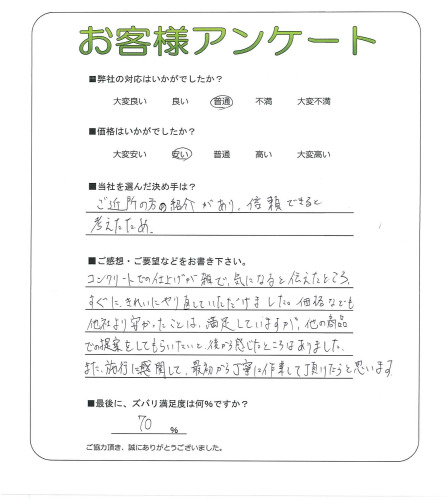 お客様アンケート
■弊社の対応はいかがでしたか？
大変良い 良い 普通 不満 大変不満
■価格はいかがでしたか？
大変安い 安い 普通 高い 大変高い
■当社を選んだ決め手は？
ご近所の方の紹介があり、信頼できると
考えたため。
■ご感想・ご要望などをお書き下さい。
コンクリートでの仕上げが雑で、気になると伝えたところ、
すぐに、きれいにやり直していただけました。価格なども
他社より安かったことは、満足していますが、他の商品
での提案をしてもらいたいと、後から感じたところはありました。
また、施行に関して、最初から丁寧に作業して頂けたらと思います
■最後に、ズバリ満足度は何％ですか？
70 ％
ご協力頂き、誠にありがとうございました。